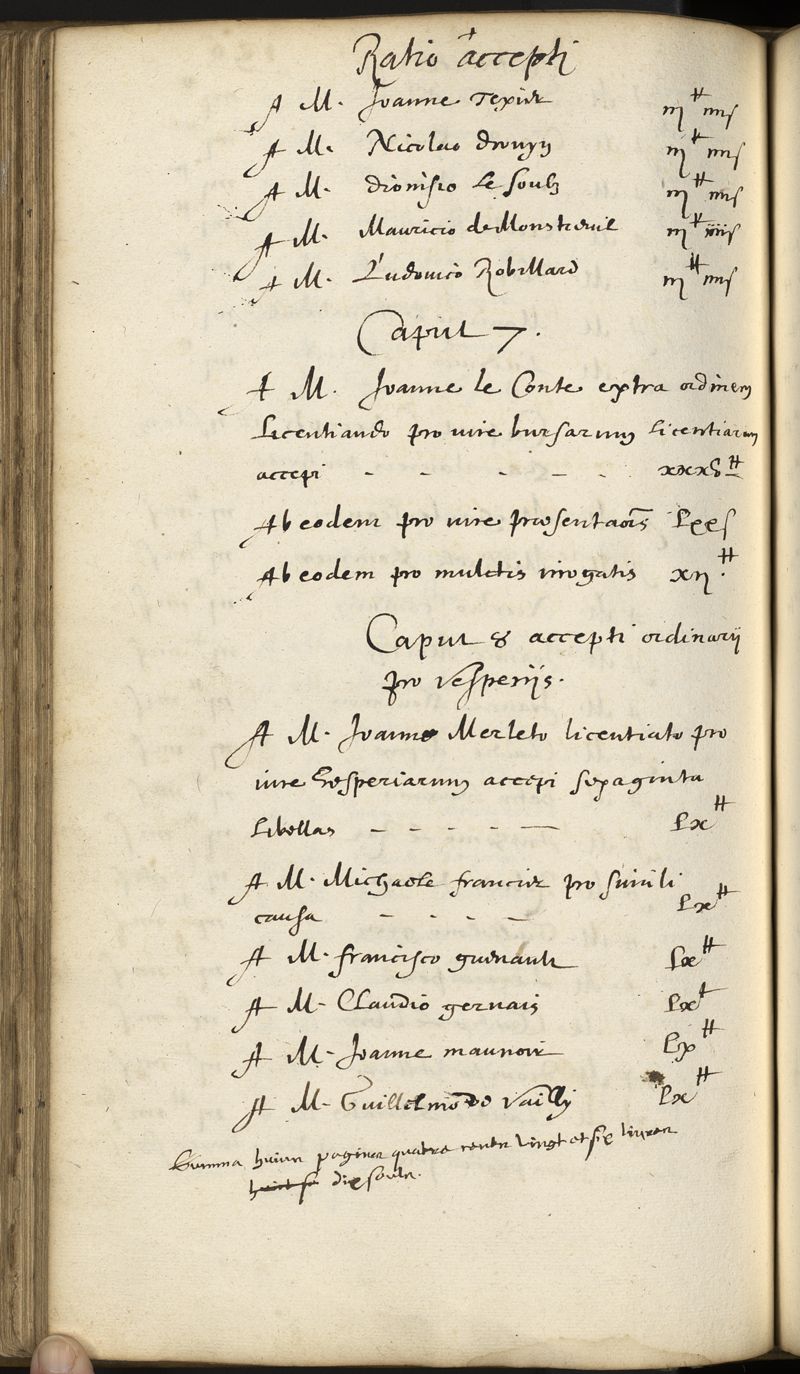 Ratio accepti
A M. Joanne Texier iij# iiijs
A M. Nicolao Drouyn iij# iiijs
A M. Dionisio Le Soubz iij# iiijs
A M. Mauricio de Monstreuil iij# iiijs
A M. Ludovico Robillard iij# iiijs
Caput 7.
A M. Joanne le Conte extra ordinem
Licentiando pro iure bursarum licentiarum
accepi - - - - - xxx#
Ab eodem pro iure præsentaõis Lxxs
Ab eodem pro mulctis irrogatis xij.#
Caput 8 accepti ordinarij
pro vesperijs.
A M. Joanne Merleto licentiato pro
iure vesperiarum accepi sexaginta
Libellas - - - - - Lx#
A M. Michaele francier pro simili
causa - - - - Lx#
A M. francisco guenault Lx#
A M. Claudio gervais Lx#
A M. Joanne maunoir Lx#
A M. Guillelmo de Vailly Lx#
Summa huius paginæ quatre centz vingt et six livres
dix soulz.